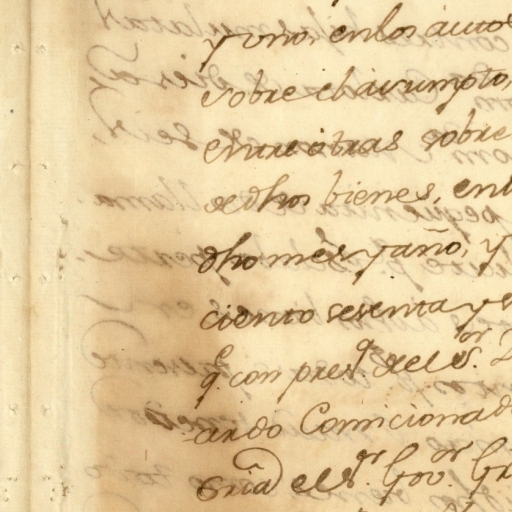 y uno, en los autos
sobre el asumpto,
entre otras sobre
de dhos bienes, en l
dho mes y año, y
ciento sesenta y s
q.e con pres.a del S.or
ando Comiciona d
S.or Gov.or